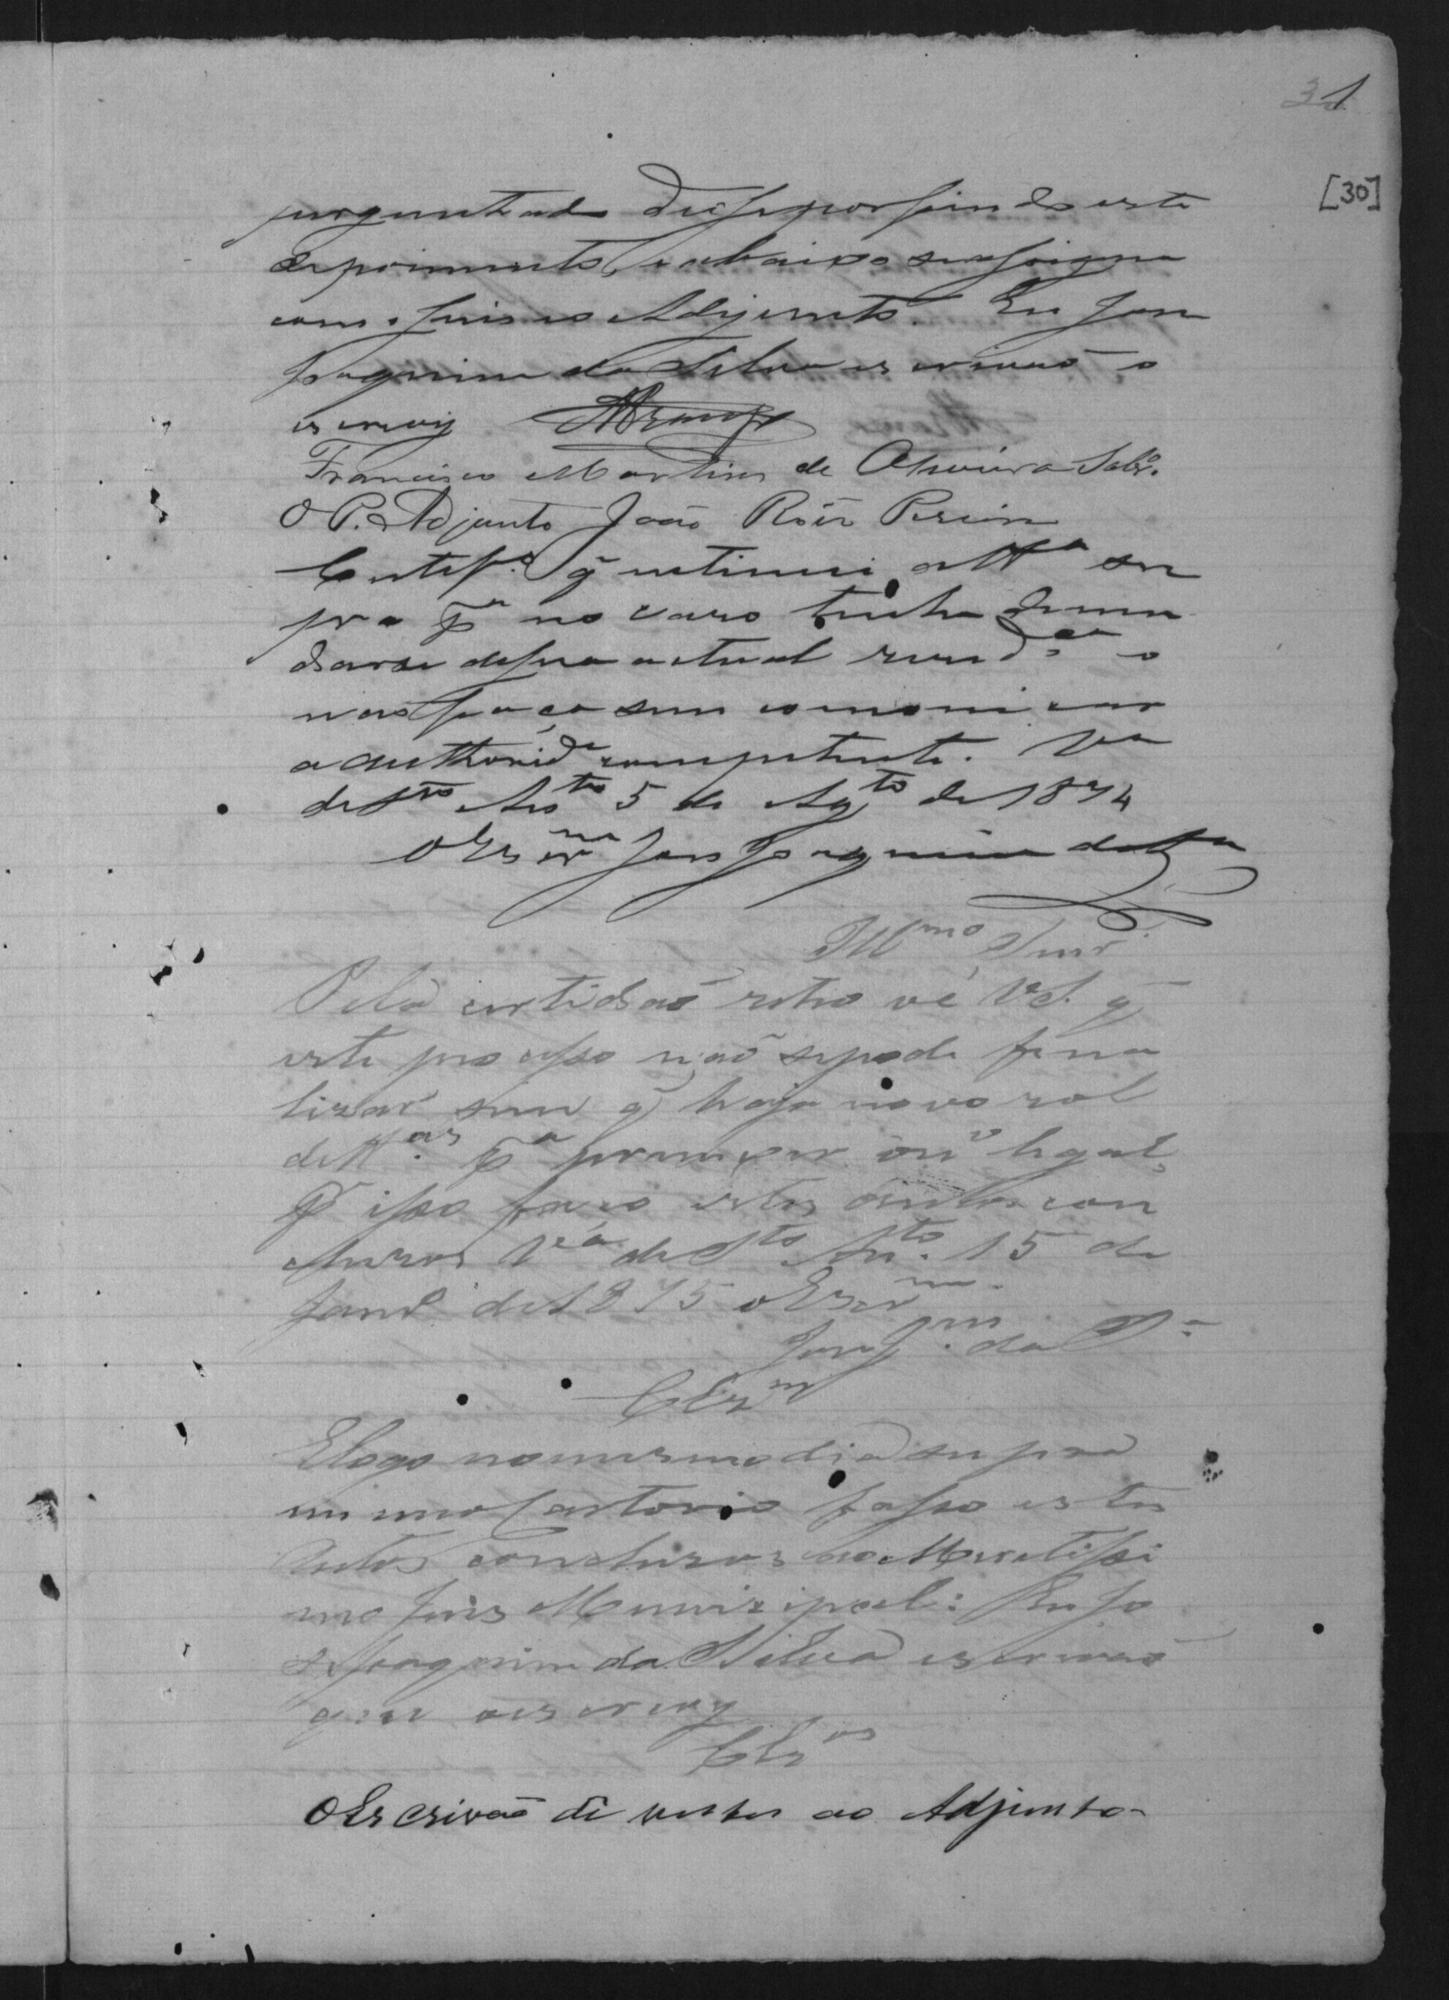 31
[30]
perguntado deu-se por findo este
depoimento, e abaixo se assigna
com o Juis e o Adjunto. Eu Jose
Joaquim da Silva escrivaõ o
escrevy Araujo
Francisco Martins de Oliveira Sobr.º
O P. Adjunto João Roiz Pereira
Certef.º q̃ intimei a tt.ª su
pra p.ª no caso tenha de mu
darse de sua actual resid.ca o
naõ faça sem comonicar
a authorid.e competente. V.a
de S.to Ant.to 5 de Ag.to de 1874
O Escr.m Jose Joaquim da S.a
Ill.mo Snr.
Pela certidaõ retro vê V.S. q̃
este processo naõ se pode fina
lizar sem q̃ haja novo rol
de tt.as p.ª prencher o n.º legal,
p.r isso faço estes autos con
cluzos V.a de S.to Ant.to 15 de
Janr.º de 1875 o Escr.m
Jose J.m da S.a
Clz.m
E logo no mesmo dia supra
em meo Cartorio fasso estes
Autos concluzos ao Meretissi
mo Juis Municipal: Eu Jo
se Joaquim da Silva escrivaõ
que o escrevy
Clz.os
O Escrivaõ dê vistas ao Adjunto-